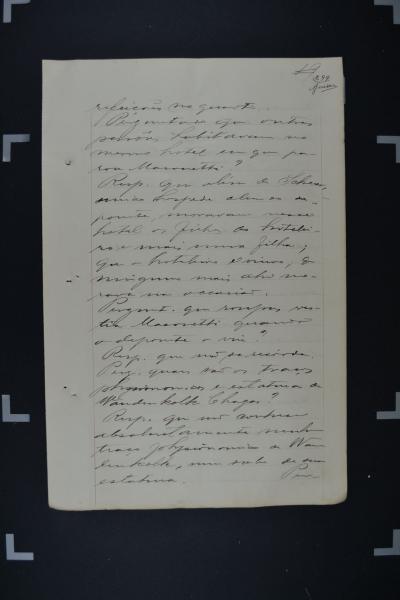 refeições no quarto.
Perguntado que outras
pessôas habitavam no
mesmo hotel em que pa-
rou Maronetti?
Resp. que alem de
unico hospede alem o de-
poente, moravam nesse
hotel os filhos do hotelei-
ro e mais uma filha;
que o hoteleiro é viuvo, e
ninguem mais ahi mo-
rava na occasião.
Pergunt. que roupas ves-
tia Maronetti quando
o depoente o viu?
Resp. que não se recorda.
Perg. quaes são os traços
physionomicos e estatura de
Wandenkolk Chagas?
Resp. que não conhece
absolutamente nenhum
traço physionomico de Wan-
denkolk, nem sabe de sua
estatura.